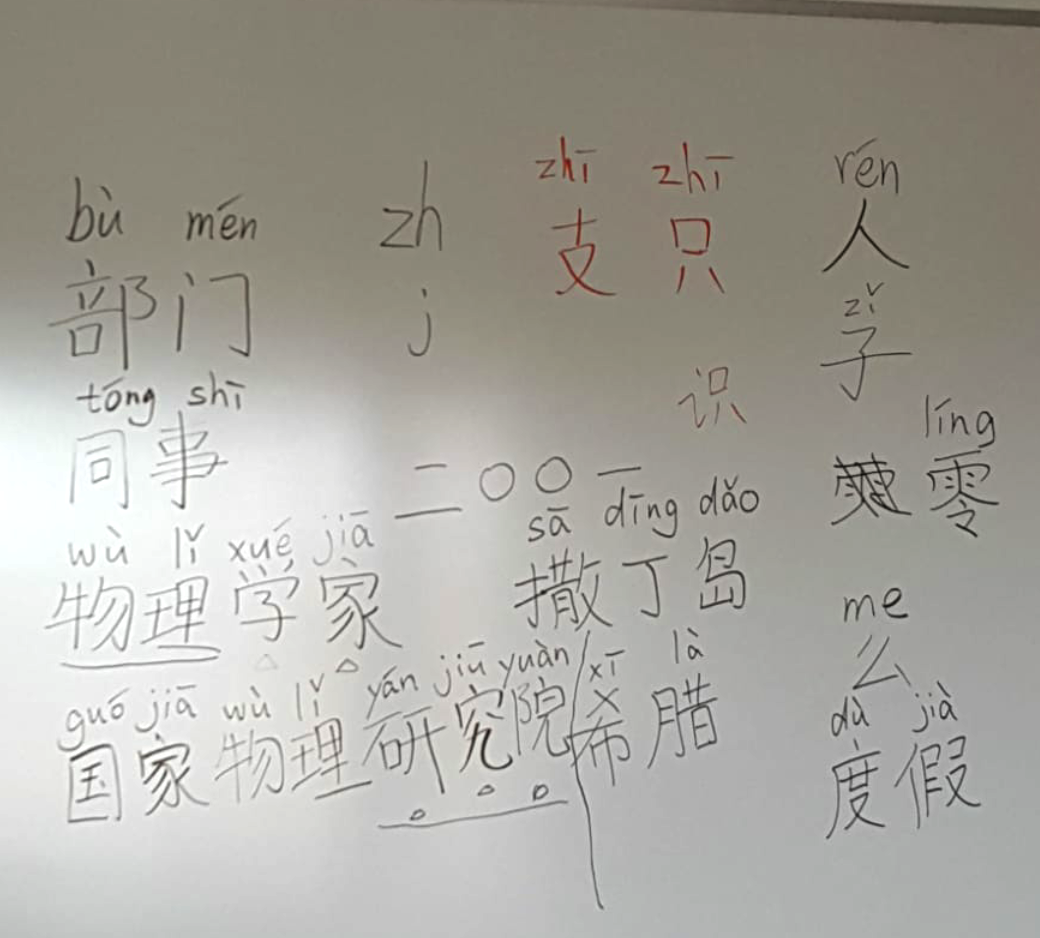 bù mén zh zhī zhī rén
部门 j 支 只 人
zǐ
子
tóng shī
同事 识 líng
二〇〇一 零
wù lǐ xué jiā sā dīng dǎo
物理学家 撒丁岛 me
么
guó jiā wù lǐ yán jiū yuàn xī là dù jià
国家物理研究院 希腊 度假